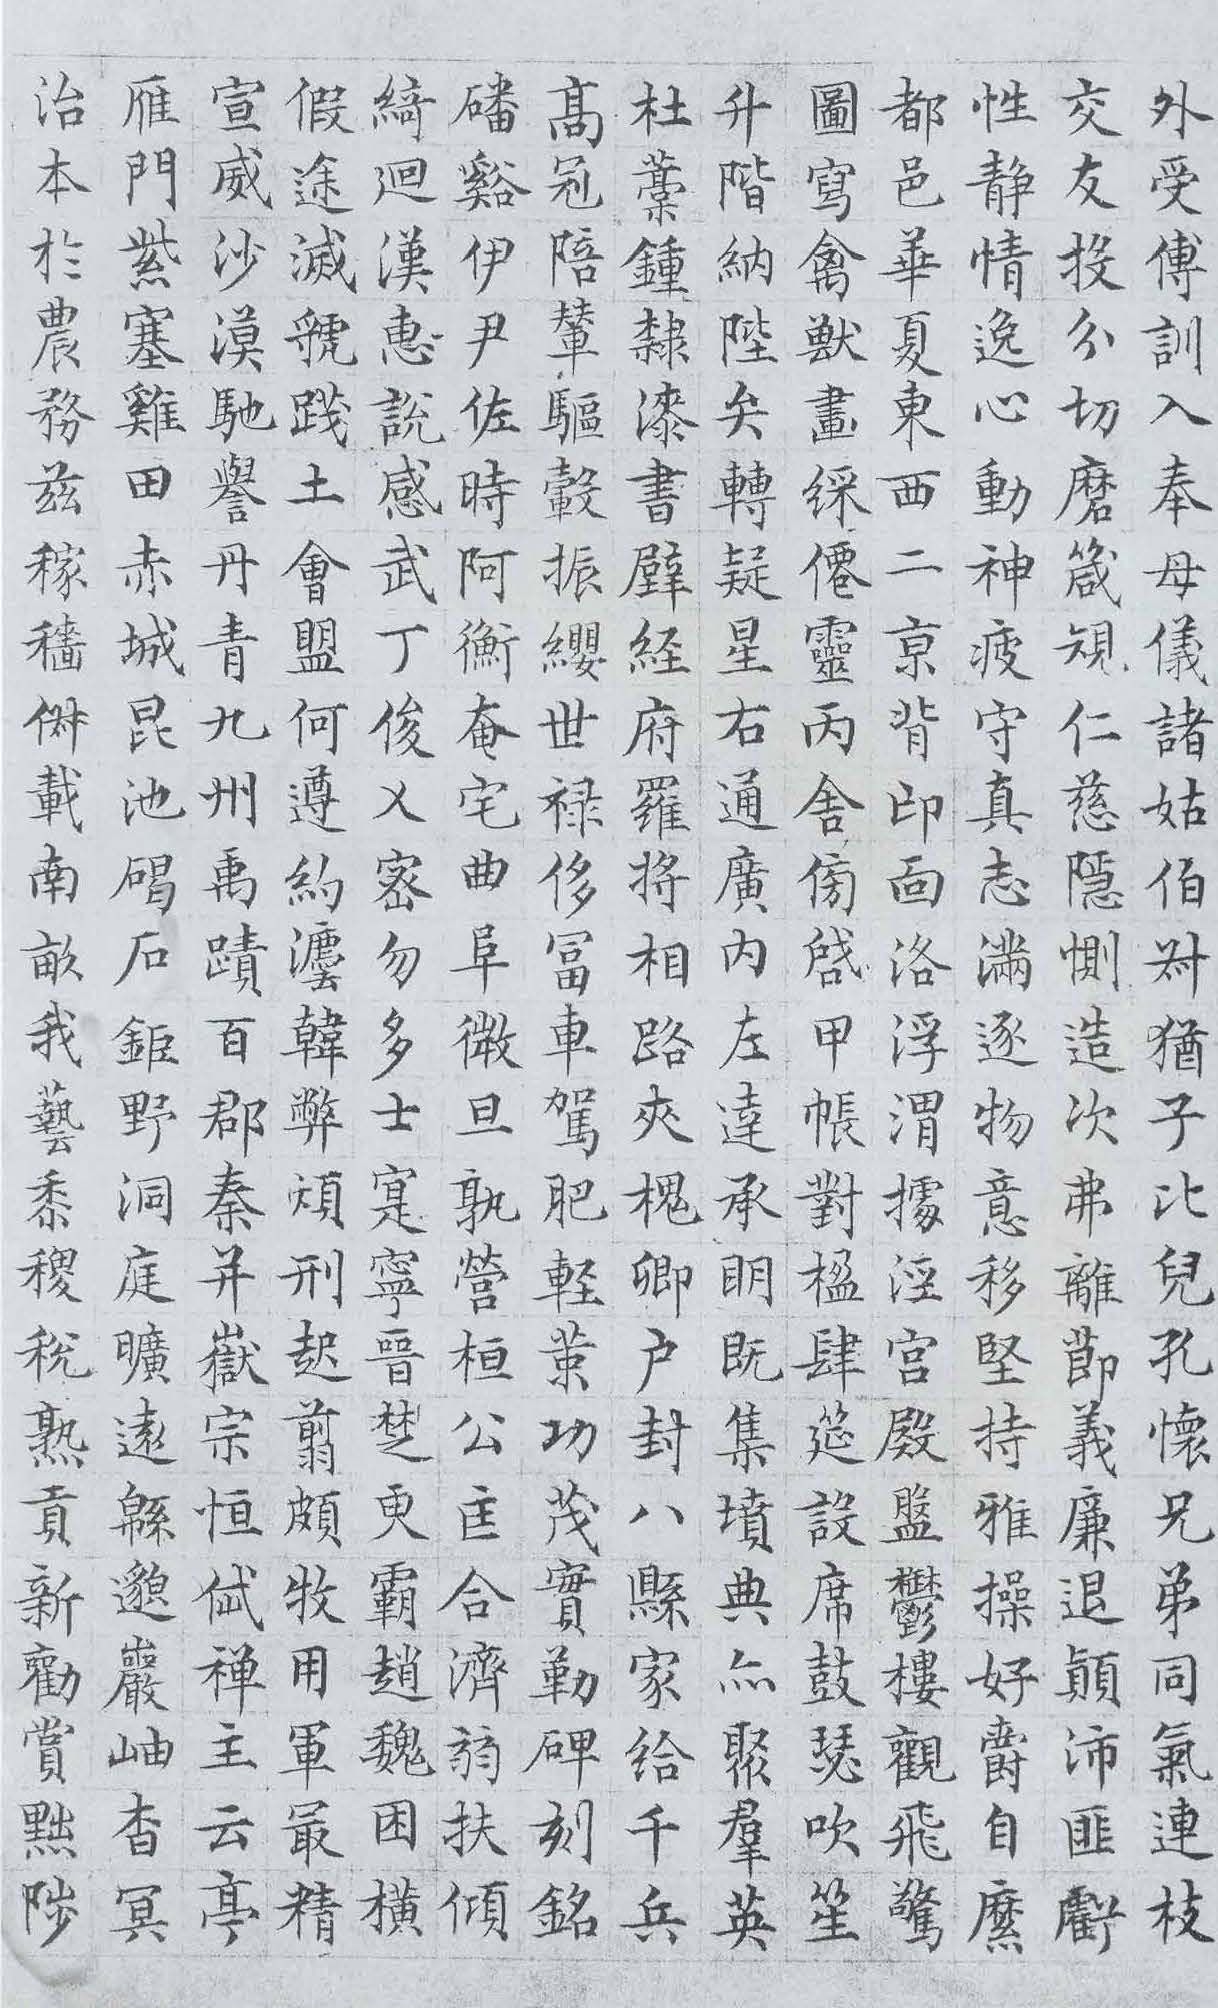 外受傅訓入奉母儀諸姑伯叔猶子比兒孔懷兄弟同氣連枝
交友投分切磨箴規仁慈隱惻造次弗離節義廉退顛沛匪虧
性静情逸心動神疲守真志滿逐物意移堅持雅操好爵自縻
都邑華夏東西二京背邙面洛浮渭據涇宮殿盤鬱樓觀飛驚
圖寫禽獸畫綵僊靈丙舍傍啓甲帳對楹肆筵設席鼓瑟吹笙
升階納陛弁轉疑星右通廣内左達承明既集墳典亦聚羣英
杜藁鍾隸漆書壁經府羅將相路夾槐卿户封八縣家給千兵
髙冠陪輦驅轂振纓世禄侈冨車駕肥軽策功茂實勒碑刻銘
磻谿伊尹佐時阿衡奄宅曲阜微旦孰營桓公匡合濟弱扶傾
綺迴漢惠説感武丁俊乂密勿多士寔寧晉楚更霸趙魏困横
假途滅虢踐土會盟何遵約灋韓弊煩刑起翦頗牧用軍最精
宣威沙漠馳譽丹青九州禹蹟百郡秦并嶽宗恒岱禅主云亭
雁門紫塞雞田赤城昆池碣石鉅野洞庭曠遠緜邈巖岫杳冥
治本於農務兹稼穡俶載南畝我藝黍稷税熟貢新勸賞黜陟